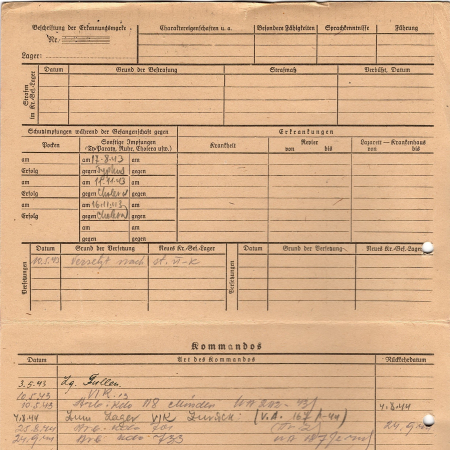 Beschriftung der Erkennungsmarke
Nr.
Lager:
Charaktereigenschaften u. a.
Besondere Fähigkeiten
Sprachkenntnisse
Führung
Strafen im Kr.-Gef.-Lager
Datum
Grund der Bestrafung
Strafmaß
Verbüßt, Datum
Schutzimpfungen während der Gefangenschaft gegen
Erkrankungen
Pocken
Sonstige Impfungen
(Ty. Paraty., Ruhr, Cholera usw.)
Krankheit
Revier
von bis
Lazarett — Krankenhaus
von bis
am am 17.8.43 am
Erfolg gegen Typhus gegen
am am 11.11.43 am
Erfolg gegen Cholera gegen
am am 16.11.43 am
Erfolg gegen Cholera gegen
am am
gegen gegen
Versetzungen
Datum
Grund der Versetzung
Neues Kr.-Gef.-Lager
Versetzungen
Datum
Grund der Versetzung
Neues Kr.-Gef.-Lager
10.5.43 Versetzt nach St. VI-K
Kommandos
Datum
Art des Kommandos
Rückkehrdatum
3.5.43 Lg. Fullen
10.5.43 VI K
10.5.43 Arb. Kdo 118 Minden 4.8.44
4.8.44 Zum Lager VI K zurück (V.A. 167
25.8.44 Arb. Kdo 701 24.9.
24.9. Arb. Kdo 733